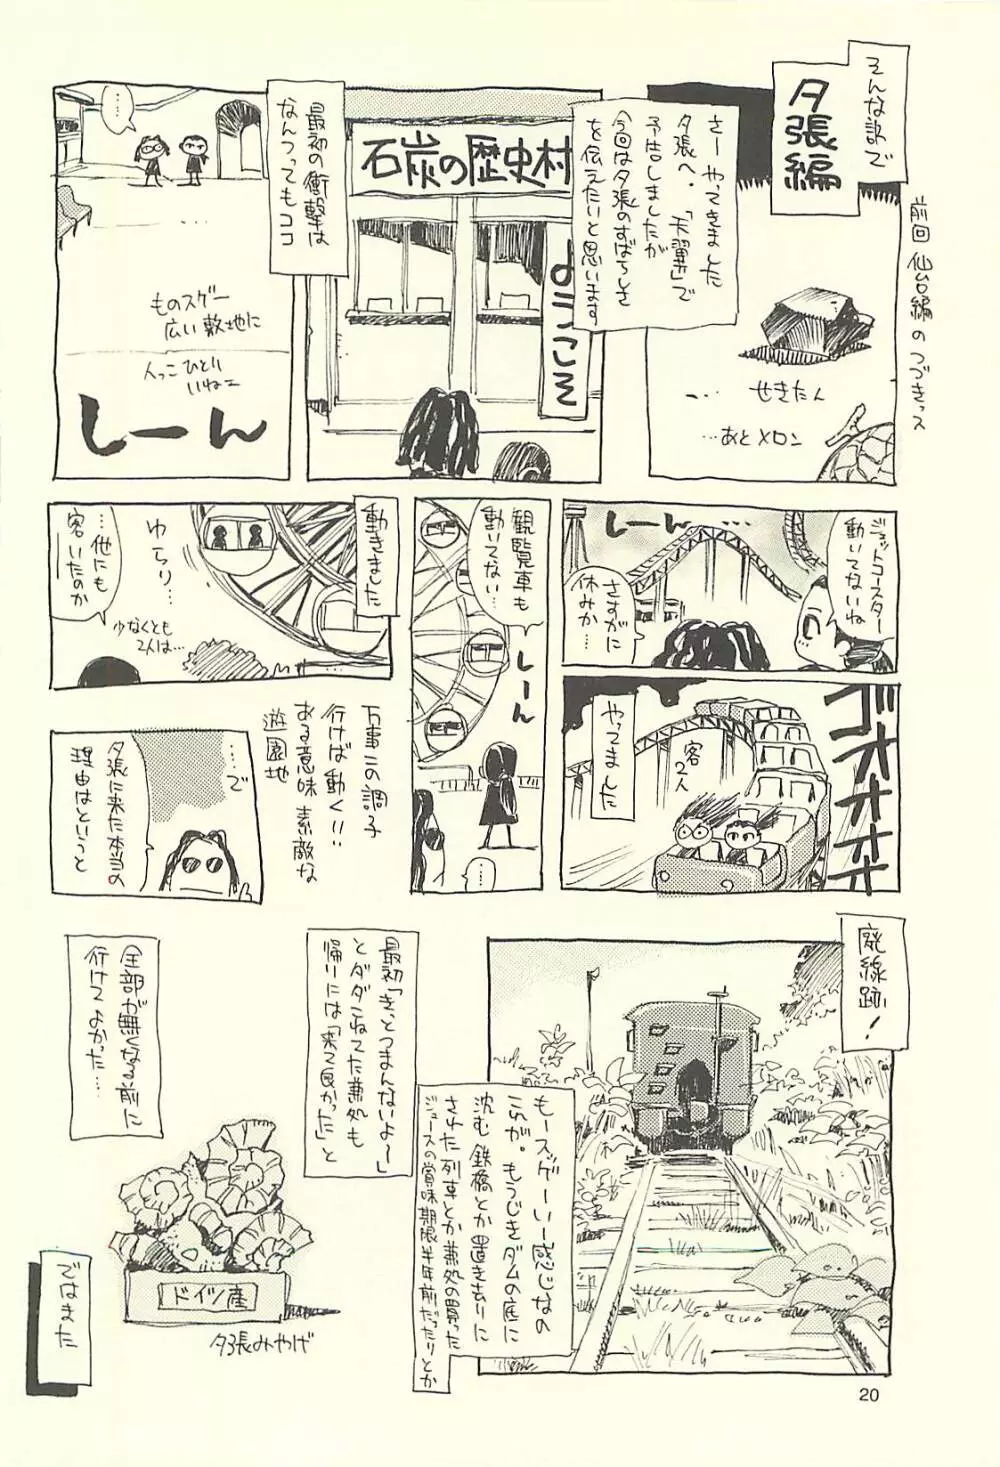 そんな訳で
夕張編
前回仙台編のつづきっス
さー やってきました
夕張へ。「天翼」で
予告しましたが
今回は夕張のすばらしさ
を伝えたいと思います
せきたん
…あとメロン
石炭の歴史村
ようこそ
最初の衝撃は
なんつってもココ
……
ものスゲー
広い敷地に
人っこひとり
いねェ
しーん
ジェットコースター
動いてないね
しーん
…
さすがに
休みか…
ゴオオオオオ
やってました
客2人
観覧車も
動いてない…
しーん
……
動きました
ゆらり…
…他にも
客いたのか
少なくとも
2人は…
万事この調子
行けば動く!!
ある意味素敵な
遊園地
…で
夕張に来た本当の
理由はというと
廃線跡!
もースッゲーいー感じなの
これが。もうじきダムの底に
沈む鉄橋とか置き去りに
された列車とか兼処の買った
ジュースの賞味期限半年前だったりとか
最初「きっとつまんないよ〜」
とダダこねてた兼処も
帰りには「来て良かった」と
全部が無くなる前に
行けてよかった…
ドイツ産
夕張みやげ
ではまた
20